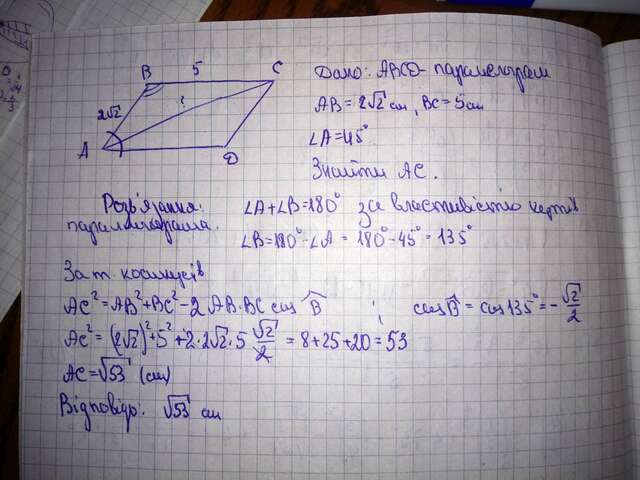 B 5 C
2√2
?
A D
Дано: ABCD - паралелограм
AB = 2√2 см, BC = 5 см
∠A = 45°
Знайти AC.
Розв'язання:
∠A + ∠B = 180° за властивістю кутів
паралелограма. ∠B = 180° - ∠A = 180° - 45° = 135°
За т косинусів
AC² = AB² + BC² - 2 AB · BC cos B̂ ; cos B̂ = cos 135° = - √2/2
AC² = (2√2)² + 5² + 2 · 2√2 · 5 √2/2 = 8 + 25 + 20 = 53
AC = √53 (см)
Відповідь: √53 см